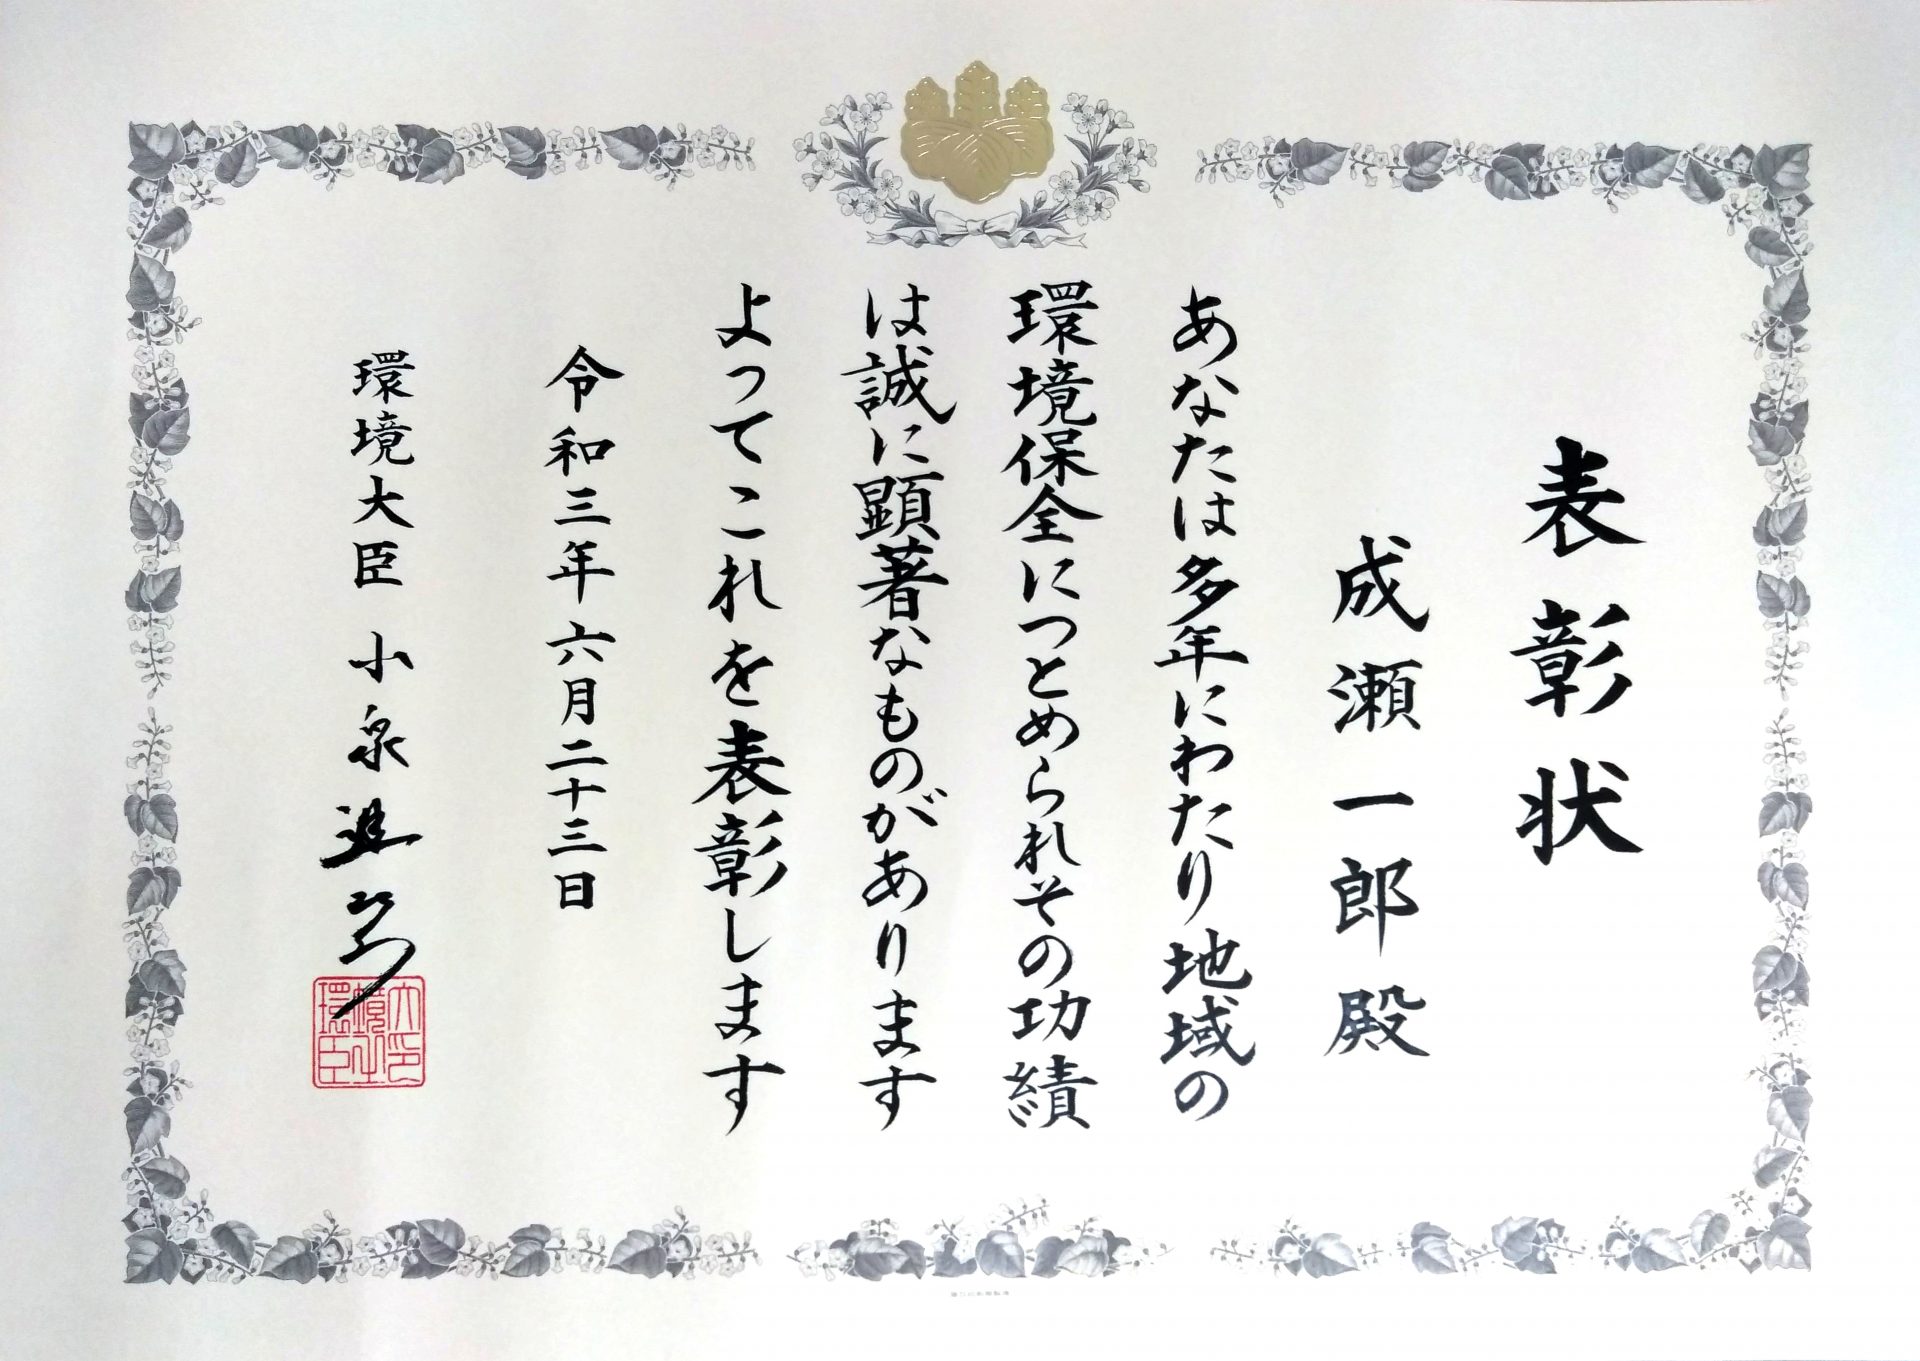 表彰状
成瀬一郎殿
あなたは多年にわたり地域の
環境保全につとめられその功績
は誠に顕著なものがあります
よってこれを表彰します
令和三年六月二十三日
環境大臣 小泉進次郎
環境大臣之印